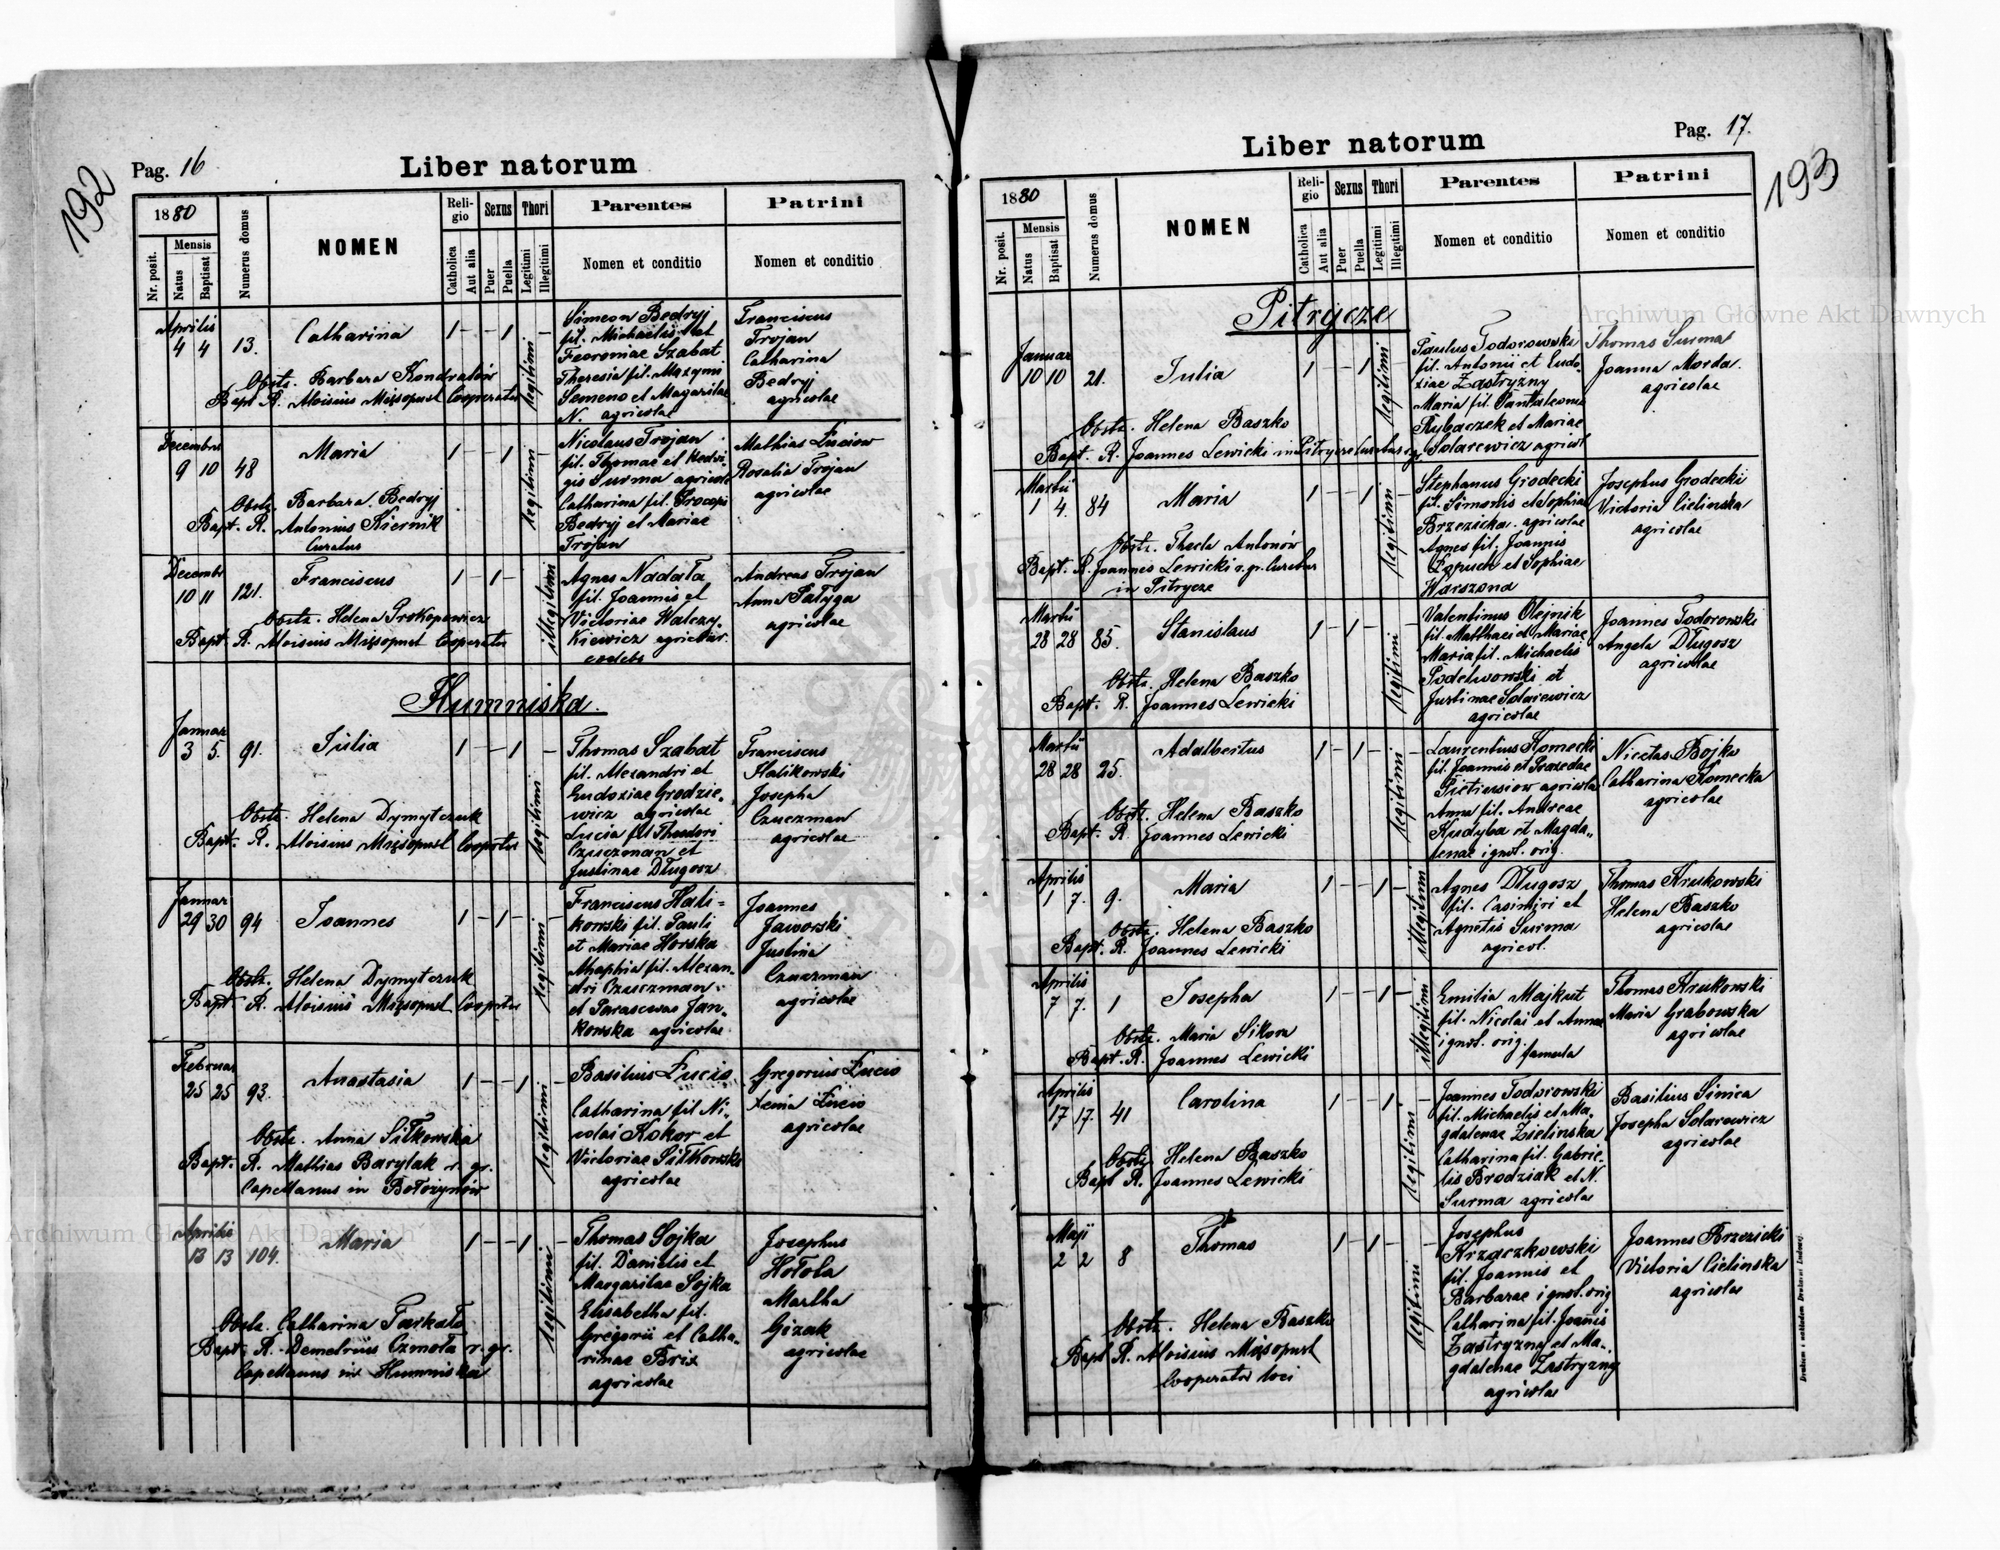 192
Pag. 16
Liber natorum
1880
Nr. posit.
Mensis
Natus
Baptisat
Numerus domus
NOMEN
Religio
Catholica
Aut alia
Sexus
Puer
Puella
Thori
Legitimi
Illegitimi
Parentes
Nomen et conditio
Patrini
Nomen et conditio
Aprilis
4 4 13. Catharina 1 – – 1 –
legitimi
Simeon Bedryj
fil. Michaelis et
Feroniae Szabat
Theresia fil. Maxymi
Semeno et Margaritae
N. agricolae
Franciscus
Trojan
Catharina
Bedryj
agricolae
Obstz. Barbara Kondratów
Bapt. R. Aloisius Mięsopust Cooperator
Decembris
9 10 48 Maria 1 – 1
legitimi
Nicolaus Trojan
fil. Thomae et Hedvi-
gis Surma agricolae
Catharina fil. Procopi
Bedryj et Mariae
Trojan
Mathias Łuciow
Rosalia Trojan
agricolae
Obstz. Barbara Bedryj
Bapt. R. Antonius Kiernik
Curatus
Decembr
10 11 121. Franciscus 1 – 1 –
illegitimi
Agnes Nadała
fil. Joannis et
Victoriae Walczy-
kiewicz agricolar.
coelebs
Andreas Trojan
Anna Pałyga
agricolae
Obstz. Helena Prokopowicz
Bapt. R. Aloisius Mięsopust Cooperator
Humniska.
Januar
3 5. 91. Julia 1 – – 1 –
legitimi
Thomas Szabat
fil. Alexandri et
Eudoxiae Grodzie-
wicz agricolae
Lucia fil. Theodori
Czuczman et
Justinae Długosz
Franciscus
Halikowski
Josepha
Czuczman
agricolae
Obstz. Helena Dymytczuk
Bapt. R. Aloisius Mięsopust Cooprtor
Januar
29 30 94 Joannes 1 – 1 –
legitimi
Franciscus Hali-
kowski fil. Pauli
et Mariae Horska
Ahaphia fil. Alexan-
dri Czuczman
et Parascevae Jan-
kowska agricolae
Joannes
Jaworski
Justina
Czuczman
agricolae
Obstz. Helena Dymytczuk
Bapt. R. Aloisius Mięsopust Cooprtor
Februar
25 25 93. Anastasia 1 – – 1 –
legitimi
Basilius Łucio
Catharina fil. Ni-
colai Kokor et
Victoriae Sitkowska
agricolae
Gregorius Łucio
Xenia Łucio
agricolae
Obstz. Anna Sitkowska
Bapt. R. Mathias Barylak r. gr.
Capellanus in Bołożynów
Aprilis
13 13 104. Maria 1 – – 1 –
legitimi
Thomas Sojka
fil. Danielis et
Margaritae Sojka
Elisabetha fil.
Gregorii et Catha-
rinae Brix
agricolae
Josephus
Hołota
Martha
Gizak
agricolae
Obstz. Catharina Tarkała
Bapt. R. Demetrius Czmoła r. gr.
Capellanus in Humniska
Liber natorum
Pag. 17.
193
1880
Nr. posit.
Mensis
Natus
Baptisat
Numerus domus
NOMEN
Religio
Catholica
Aut alia
Sexus
Puer
Puella
Thori
Legitimi
Illegitimi
Parentes
Nomen et conditio
Patrini
Nomen et conditio
Pitrycze
Januar
10 10 21. Julia 1 – – 1
legitimi
Paulus Todorowski
fil. Antonii et Eudo-
xiae Zastryzny
Maria fil. Pantaleonis
Rybaczek et Mariae
Solarewicz agricol
Thomas Surmat
Joanna Morda.
agricolae
Obstz. Helena Baszko
Bapt. R. Joannes Lewicki in Pitrycze Curatus r. gr.
Martii
1 4. 84 Maria 1 – – 1 –
legitimi
Stephanus Grodecki
fil. Simonis et Sophiae
Brzezicka. agricolae
Agnes fil. Joannis
Łapuch et Sophiae
Warszona
Josephus Grodecki
Victoria Cielinska
agricolae
Obstz. Thecla Antonów
Bapt. R. Joannes Lewicki r. gr. Curatus
in Pitrycze
Martii
28 28 85. Stanislaus 1 – 1 – –
legitimi
Valentinus Olejnik
fil. Matthaei et Mariae
Maria fil. Michaelis
Podelwonski et
Justinae Solarewicz
agricolae
Joannes Todorowski
Angela Długosz
agricolae
Obstz. Helena Baszko
Bapt. R. Joannes Lewicki
Martii
28 28 25. Adalbertus 1 – 1 – –
legitimi
Laurentius Komecki
fil. Joannis et Praxedae
Pietiusiow agricolae
Anna fil. Andreae
Kudyba et Magda-
lenae ignot. orig.
Nicetas Bojko
Catharina Komecka
agricolae
Obstz. Helena Baszko
Bapt. R. Joannes Lewicki
Aprilis
1 7. 9. Maria 1 – – 1 –
illegitimi
Agnes Długosz
fil. Casimiri et
Agnetis Surma
agricol.
Thomas Krukowski
Helena Baszko
agricolae
Obstz. Helena Baszko
Bapt. R. Joannes Lewicki
Aprilis
7 7. 1 Josepha 1 – – 1 –
illegitimi
Emilia Majkut
fil. Nicolai et Annae
ignot. orig.
famula
Thomas Krukowski
Maria Grabowska
agricolae
Obstz. Maria Sikora
Bapt. R. Joannes Lewicki
Aprilis
17 17. 41 Carolina 1 – – 1 –
legitimi
Joannes Todorowski
fil. Michaelis et Ma-
gdalenae Zielinska
Catharina fil. Gabrie-
lis Brodziak et N.
Surma agricolae
Basilius Sinica
Josepha Solarowicz
agricolae
Obstz. Helena Baszko
Bapt R. Joannes Lewicki
Maji
2 2 8 Thomas 1 – 1 –
legitimi
Josephus
Krzaczkowski
fil. Joannis et
Barbarae ignot. orig
Catharina fil. Joanis
Zastryzny et Ma-
gdalenae Zastryzny
agricolae
Joannes Brzezicki
Victoria Cielinska
agricolae
Obstz. Helena Baszko
Bapt R. Aloisius Mięsopust
Cooperator loci
Drukiem i nakładem Drukarni Ludowej.
Archiwum Główne Akt Dawnych
Archiwum Główne Akt Dawnych